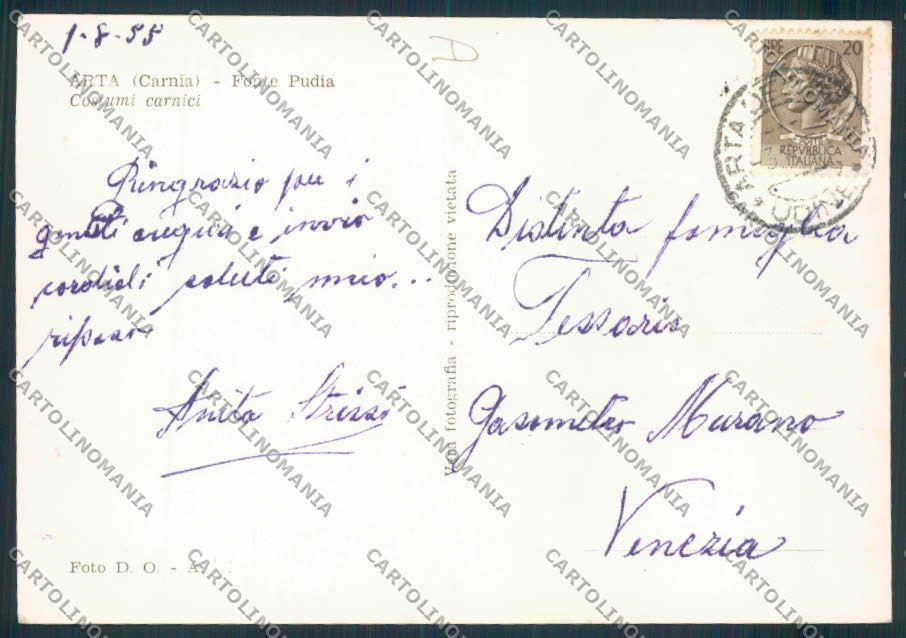 1-8-55
ARTA (Carnia) - Fonte Pudia
Costumi carnici
Ringrazio per i
gentili auguri e invio
cordiali saluti
Anita
Foto D. O. - A
Vera fotografia - riproduzione vietata
LIRE 20
POSTE
REPVBBLICA
ITALIANA
ARTA
UDINE
Distinta famiglia
Tessaris
Gasometro Murano
Venezia
CARTOLINOMANIA